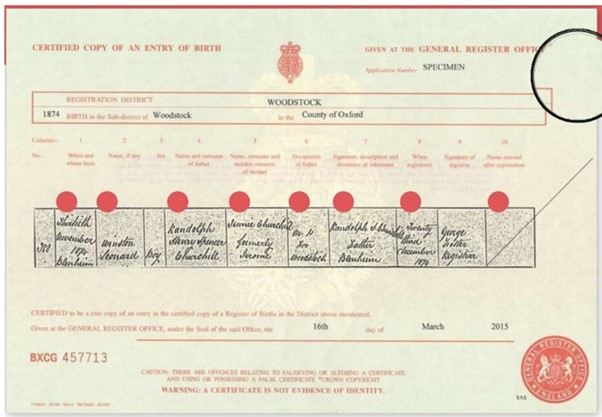 CERTIFIED COPY OF AN ENTRY OF BIRTH
GIVEN AT THE GENERAL REGISTER OFFICE
Application Number SPECIMEN
REGISTRATION DISTRICT WOODSTOCK
1874 BIRTH in the Sub-district of Woodstock in the County of Oxford
Columns:- 1 2 3 4 5 6 7 8 9 10
No. When and where born Name, if any Sex Name and surname of father Name, surname and maiden surname of mother Occupation of father Signature, description and residence of informant When registered Signature of registrar Name entered after registration
Thirtieth November 1874 Blenheim
Winston Leonard
Boy
Randolph Henry Spencer Churchill
Jennie Churchill formerly Jerome
M.P. for Woodstock
Randolph S. Churchill Father Blenheim
Twenty third December 1874
George Registrar
CERTIFIED to be a true copy of an entry in the certified copy of a Register of Births in the District above mentioned.
Given at the GENERAL REGISTER OFFICE, under the Seal of the said Office, the 16th day of March 2015
BXCG 457713
CAUTION: THERE ARE OFFENCES RELATING TO FALSIFYING OR ALTERING A CERTIFICATE
AND USING OR POSSESSING A FALSE CERTIFICATE ©CROWN COPYRIGHT
WARNING: A CERTIFICATE IS NOT EVIDENCE OF IDENTITY.
GENERAL REGISTER OFFICE
ENGLAND
SAS